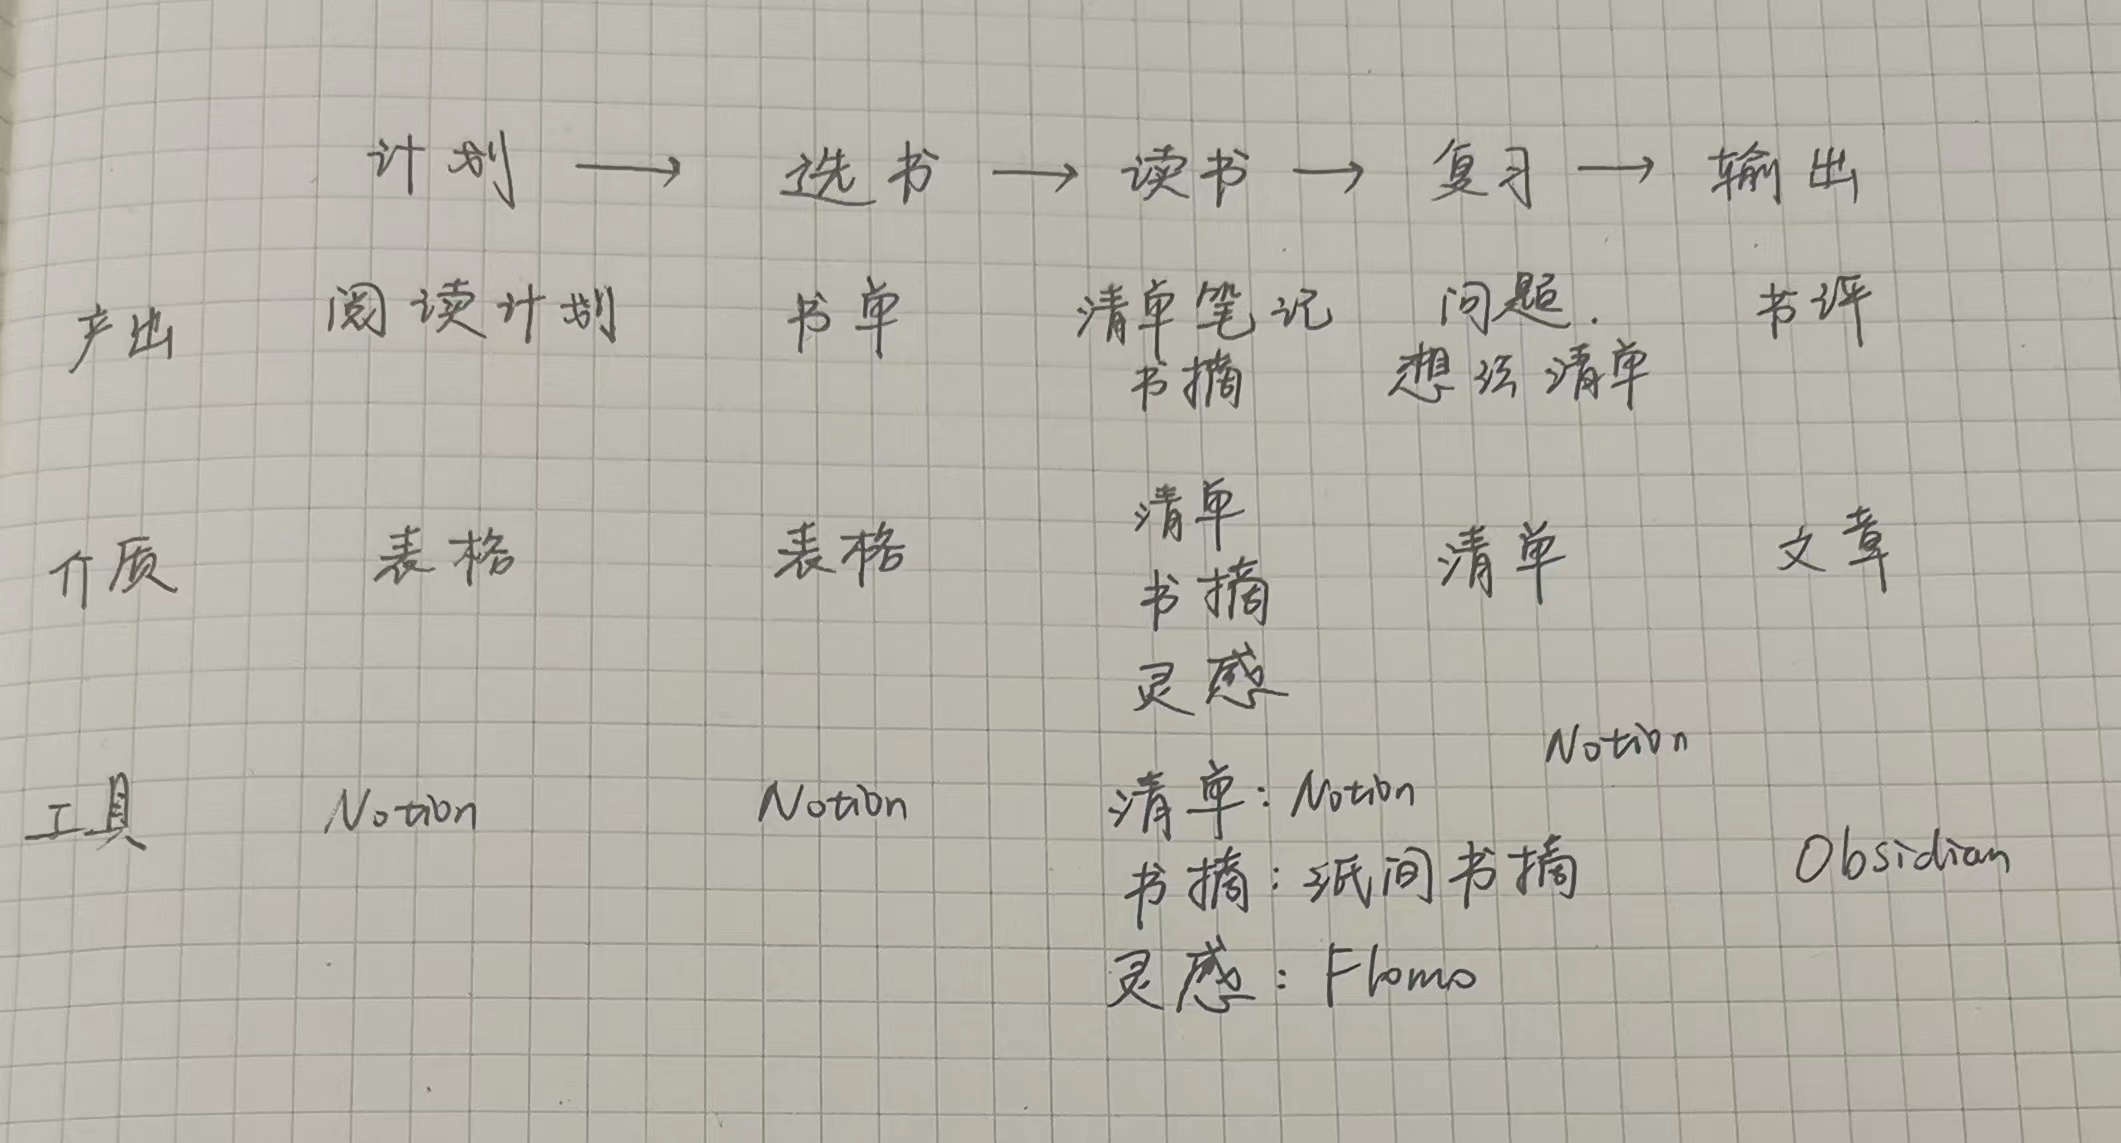 计划 → 选书 → 读书 → 复习 → 输出
产出 阅读计划 书单 清单笔记 问题.
书评
书摘 想法清单
清单
介质 表格 表格 清单 文章
书摘
灵感
Notion
工具 Notion Notion 清单: Notion
书摘: 纸间书摘 Obsidian
灵感: Flomo